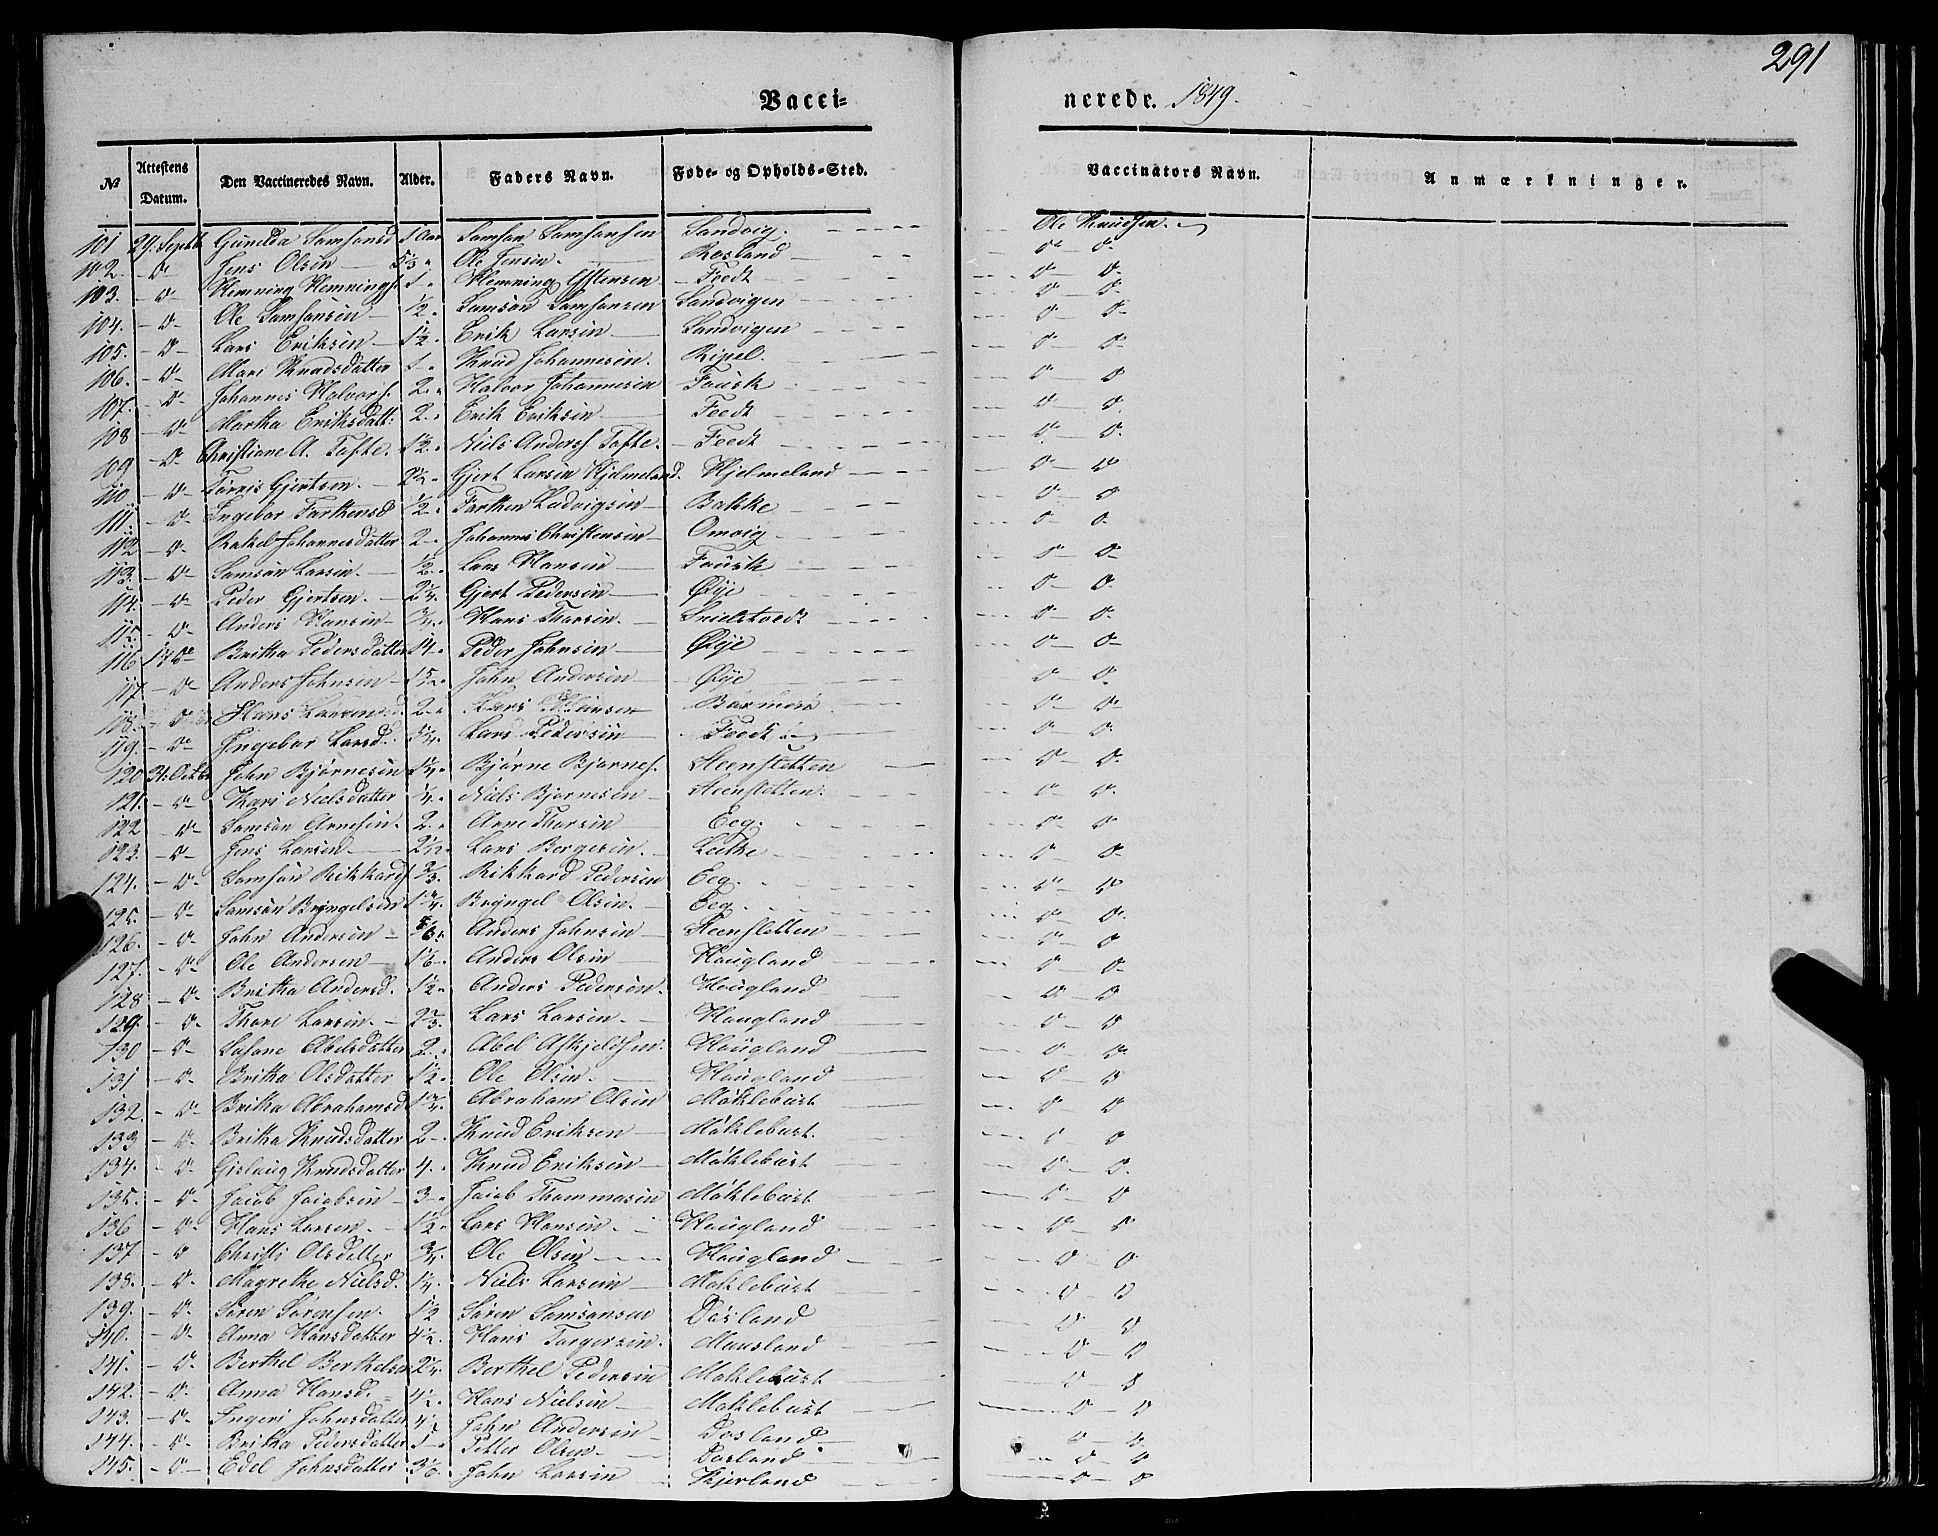 291
Vacci- nerede. 1849.
№ Attestens Datum. Den Vaccineredes Navn. Alder. Faders Navn. Føde- og Opholds-Sted. Vaccinators Navn. Anmærkninger.
101 29. Septb Gunilda Samsonsd 1 Aar Samson Samsonsen Sandvig. Ole Knudsen.
102. -"- Jens Olsen Ole Jensen. Rosland -"- -"-
103. -"- Hemming Hemmings. 1 Hemming Feedt -"- -"-
104. -"- Ole Samsonsen 1/2 Samson Samsonsen Sandvigen -"- -"-
105. -"- Lars Eriksen 1 1/2 Erik Larsen Sandvigen -"- -"-
106. -"- Mari Knudsdatter 1 Knud Johannesen. Ripel. -"- -"-
107. -"- Johannes Halvors. 2 Halvor Johannesen Fousk -"- -"-
108 -"- Martha Eriksdatt: 2 Erik Eriksen Feedt -"- -"-
109 -"- Christiane A. Tofte. 1 1/2 Niels Anders. Tofte. Feedt -"- -"-
110 -"- Torris Gjertsen. 2 1/2 Gjert Larsen Hjelmeland. Hjelmeland -"- -"-
111. -"- Ingebor 1/2 Ludvigsen Bakke -"- -"-
112 -"- Rakel Johannesdatter 2 Johannes Christensen Omvig -"- -"-
113. -"- Samson Larsen. 1/2 Lars Hansen Fousk -"- -"-
114. -"- Peder Gjertsen. 2 1/4 Gjert Pedersen Øye -"- -"-
115. -"- Anders Hansen 3/4 Hans Thorsen. -"- -"-
116 Britha Pedersdatter Peder Johnsen Øye -"- -"-
117 -"- Anders Johnsen John Andersen Øye -"- -"-
118. -"- Hans 2 Hansen -"- -"-
119. -"- Ingebor Larsd. Lars Pedersen Feedt -"- -"-
120 31. Octbr John Bjørnesen 1 1/4 Bjørne Bjørnes. Steensletten -"- -"-
121. -"- Kari Nielsdatter 1/4 Niels Bjørnesen Steensletten. -"- -"-
122 -"- Samson Arnesen. 2 Arne Thorsen Eeg. -"- -"-
123. -"- Jens Larsen Lars Borgesen. -"- -"-
124. -"- Samson Rikkards Rikkard Pedersen Eeg. -"- -"-
125. -"- Samson Bryngelsen 1 3/4 Bryngel Olsen. Eeg -"- -"-
126. -"- John Andersen Anders Johnsen Steensletten -"- -"-
127. -"- Ole Andersen Anders Olsen Hougland -"- -"-
128 -"- Britha Andersd. 1 1/2 Anders Pedersen. Hougland -"- -"-
129. -"- Thore Larsen. 2 2/3 Lars Larsen. Hougland -"- -"-
130 -"- Abelsdatter 2 Abel Askjeldsen. Hougland -"- -"-
131 -"- Britha Olsdatter 1 1/2 Ole Olsen. Hougland -"- -"-
132. -"- Britha Abrahamsd 1 3/4 Abraham Olsen Møklebust -"- -"-
133 -"- Britha Knudsdatter 2 Knud Eriksen Møklebust. -"- -"-
134. -"- Gislaug Knudsdatter 4. Knud Eriksen Møklebust -"- -"-
135. -"- Jacob Jacobsen 3 Jacob Thommasen Møklebust -"- -"-
136 -"- Hans Larsen. 1 1/2 Lars Hansen. Hougland -"- -"-
137 -"- Christi Olsdatter 3/4 Ole Olsen Hougland -"- -"-
138. -"- Magrethe Nielsd. 1 1/4 Niels Larsen Møklebust -"- -"-
139. -"- Søren Sørensen. 1 1/2 Søren Samsonsen Dosland -"- -"-
140. -"- Anna Hansdatter 4 1/2 Hans Torgersen. Mousland -"- -"-
141. -"- Berthel Berthelsen 2 1/4 Berthel Pedersen Møklebust -"- -"-
142. -"- Anna Hansd. 4 1/2 Hans Nielsen Møklebust -"- -"-
143. -"- Ingeri Johnsdatter 4 1/2 John Andersen Dosland -"- -"-
144. -"- Britha Pedersdatter 1 Petter Olsen. Dosland -"- -"-
145. -"- Edel Johnsdatter John Larsen Kjerland -"- -"-